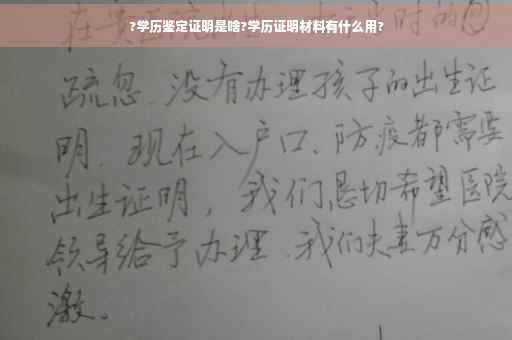 ?学历鉴定证明是啥?学历证明材料有什么用?
在贵医院出生 当时的
疏忽、没有办理孩子的出生证
明、现在入户口、防疫都需要
出生证明，我们恳切希望医院
领导给予办理、我们夫妻万分感
激。